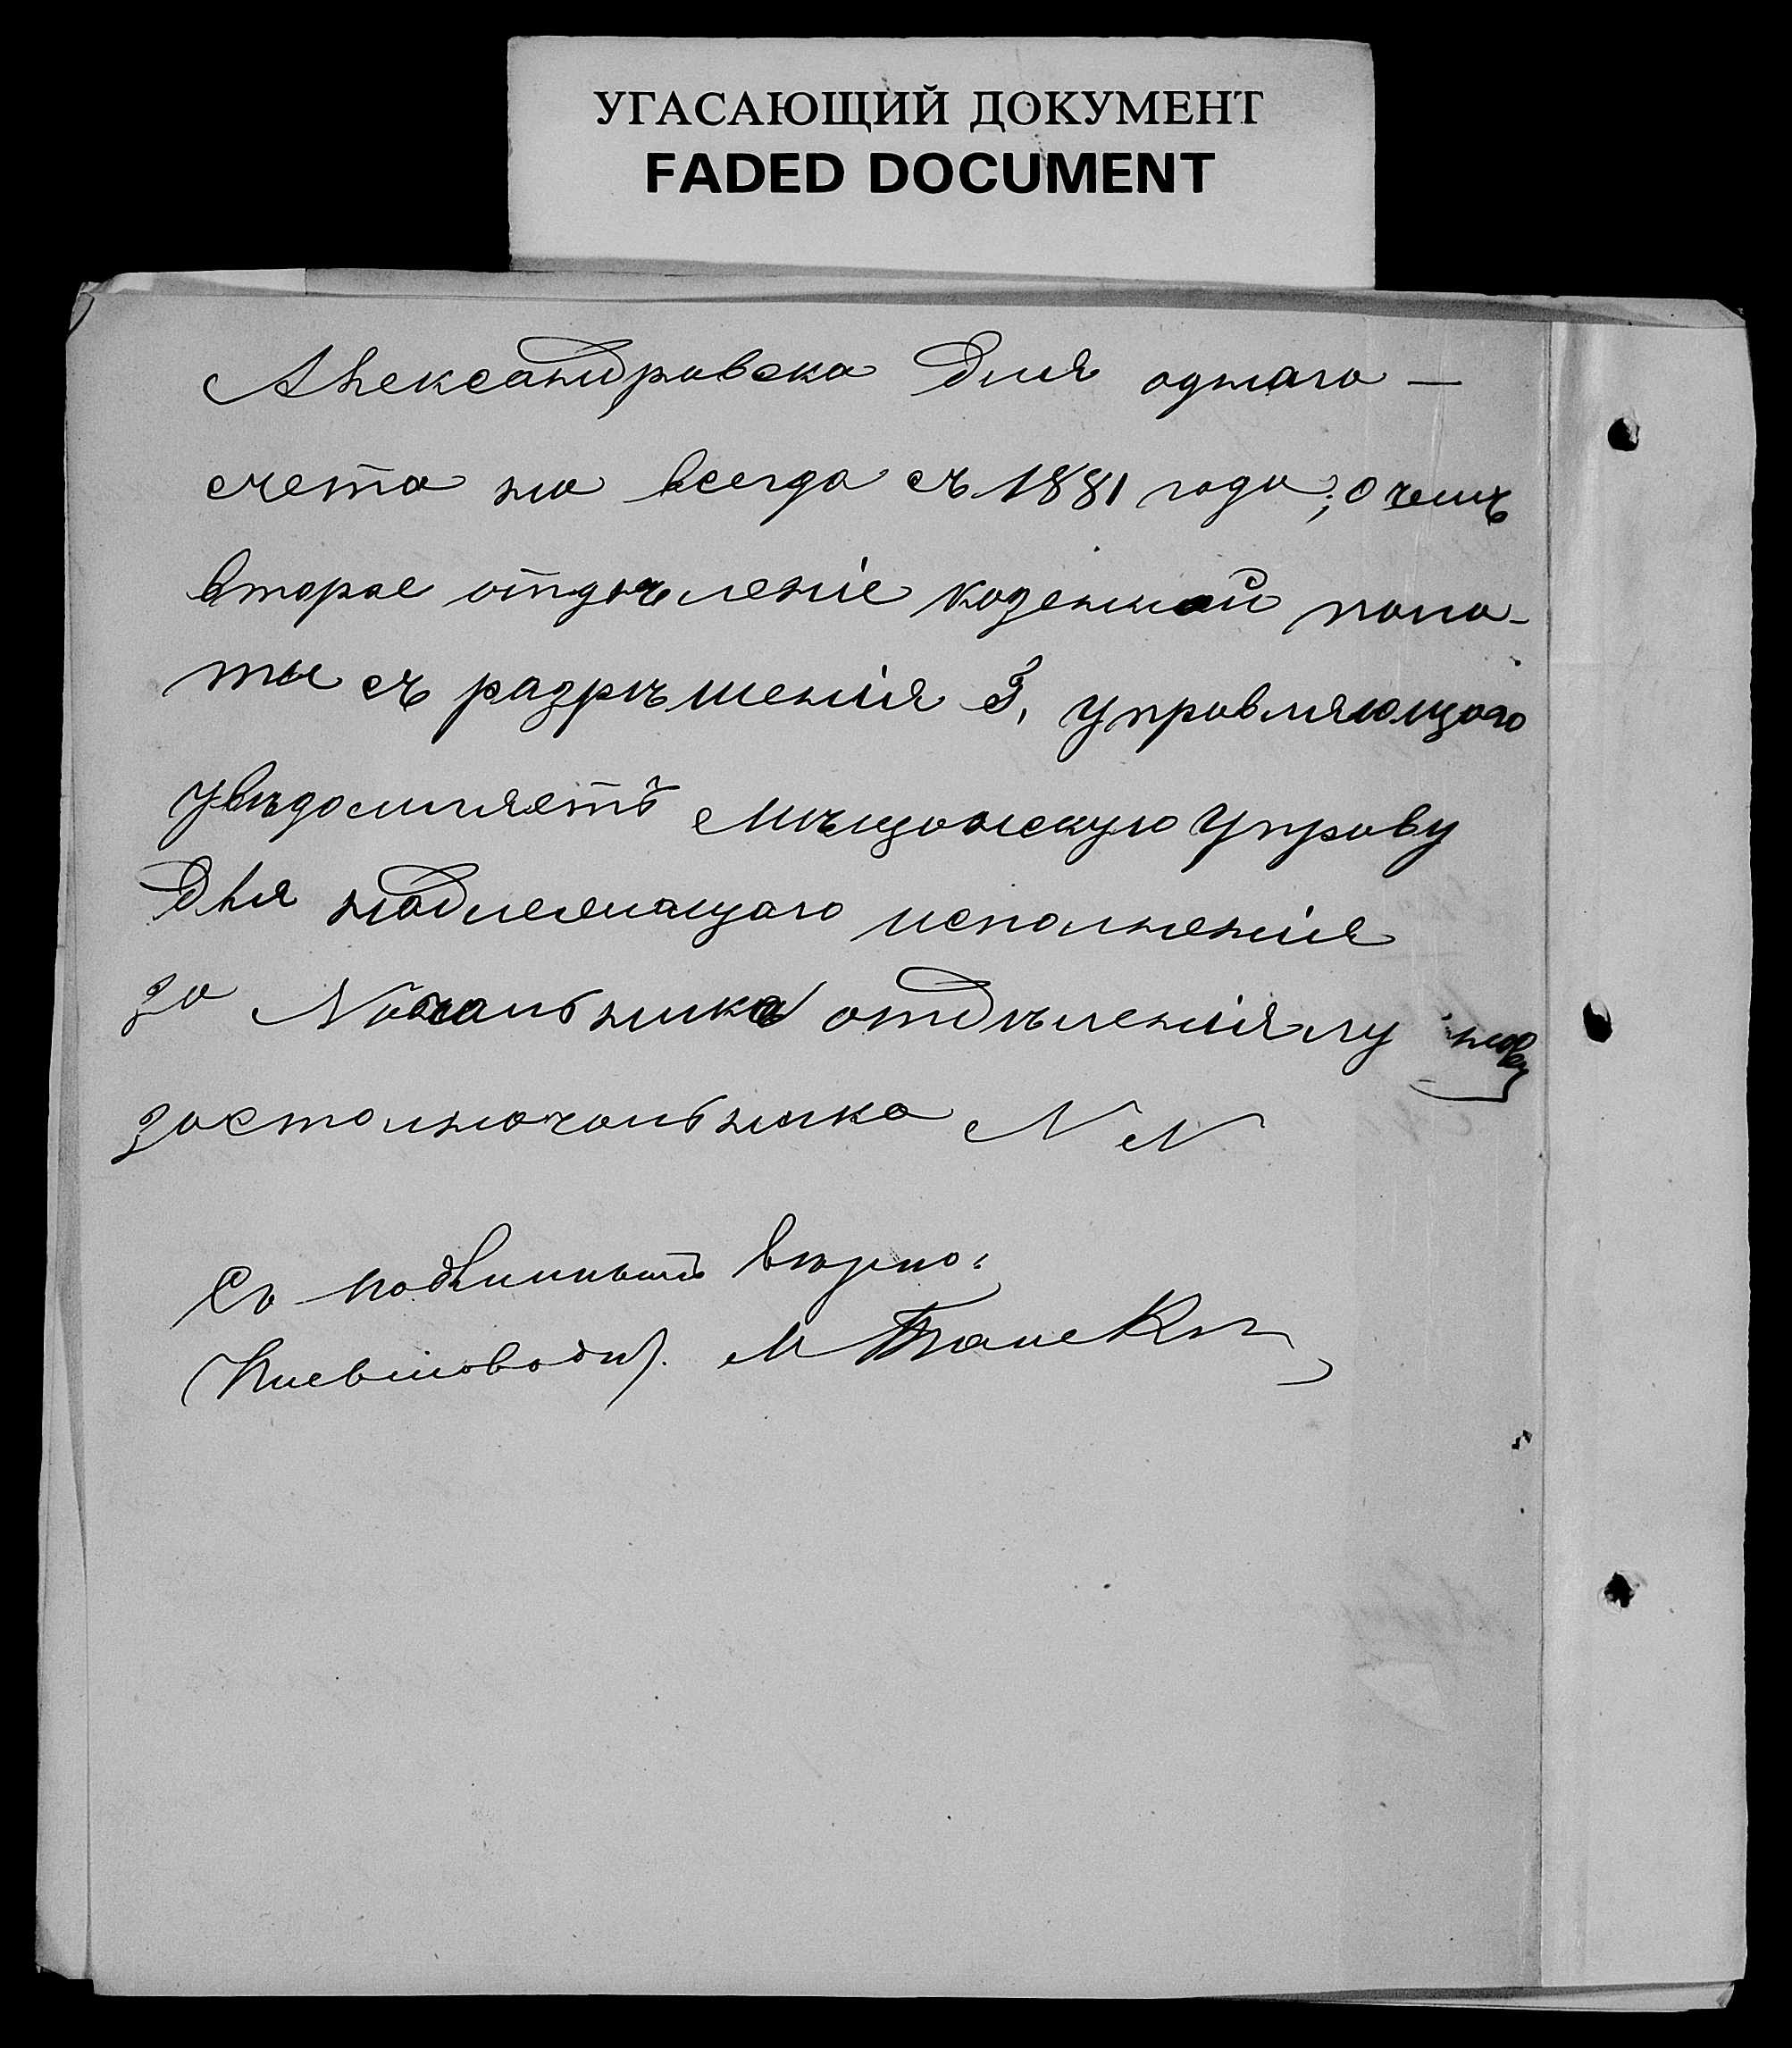 УГАСАЮЩИЙ ДОКУМЕНТ
FADED DOCUMENT
Александровска для однаго —
счета на всегда съ 1881 года; о чемъ
второе отдѣленіе казенной пала-
ты съ разрѣшенія Г, управляющаго
увѣдомляетъ мѣщанскую управу
для надлежащаго исполненія
за Начальника отдѣленія
за столоначальника N N
Съ подлиннымъ вѣрно:
М